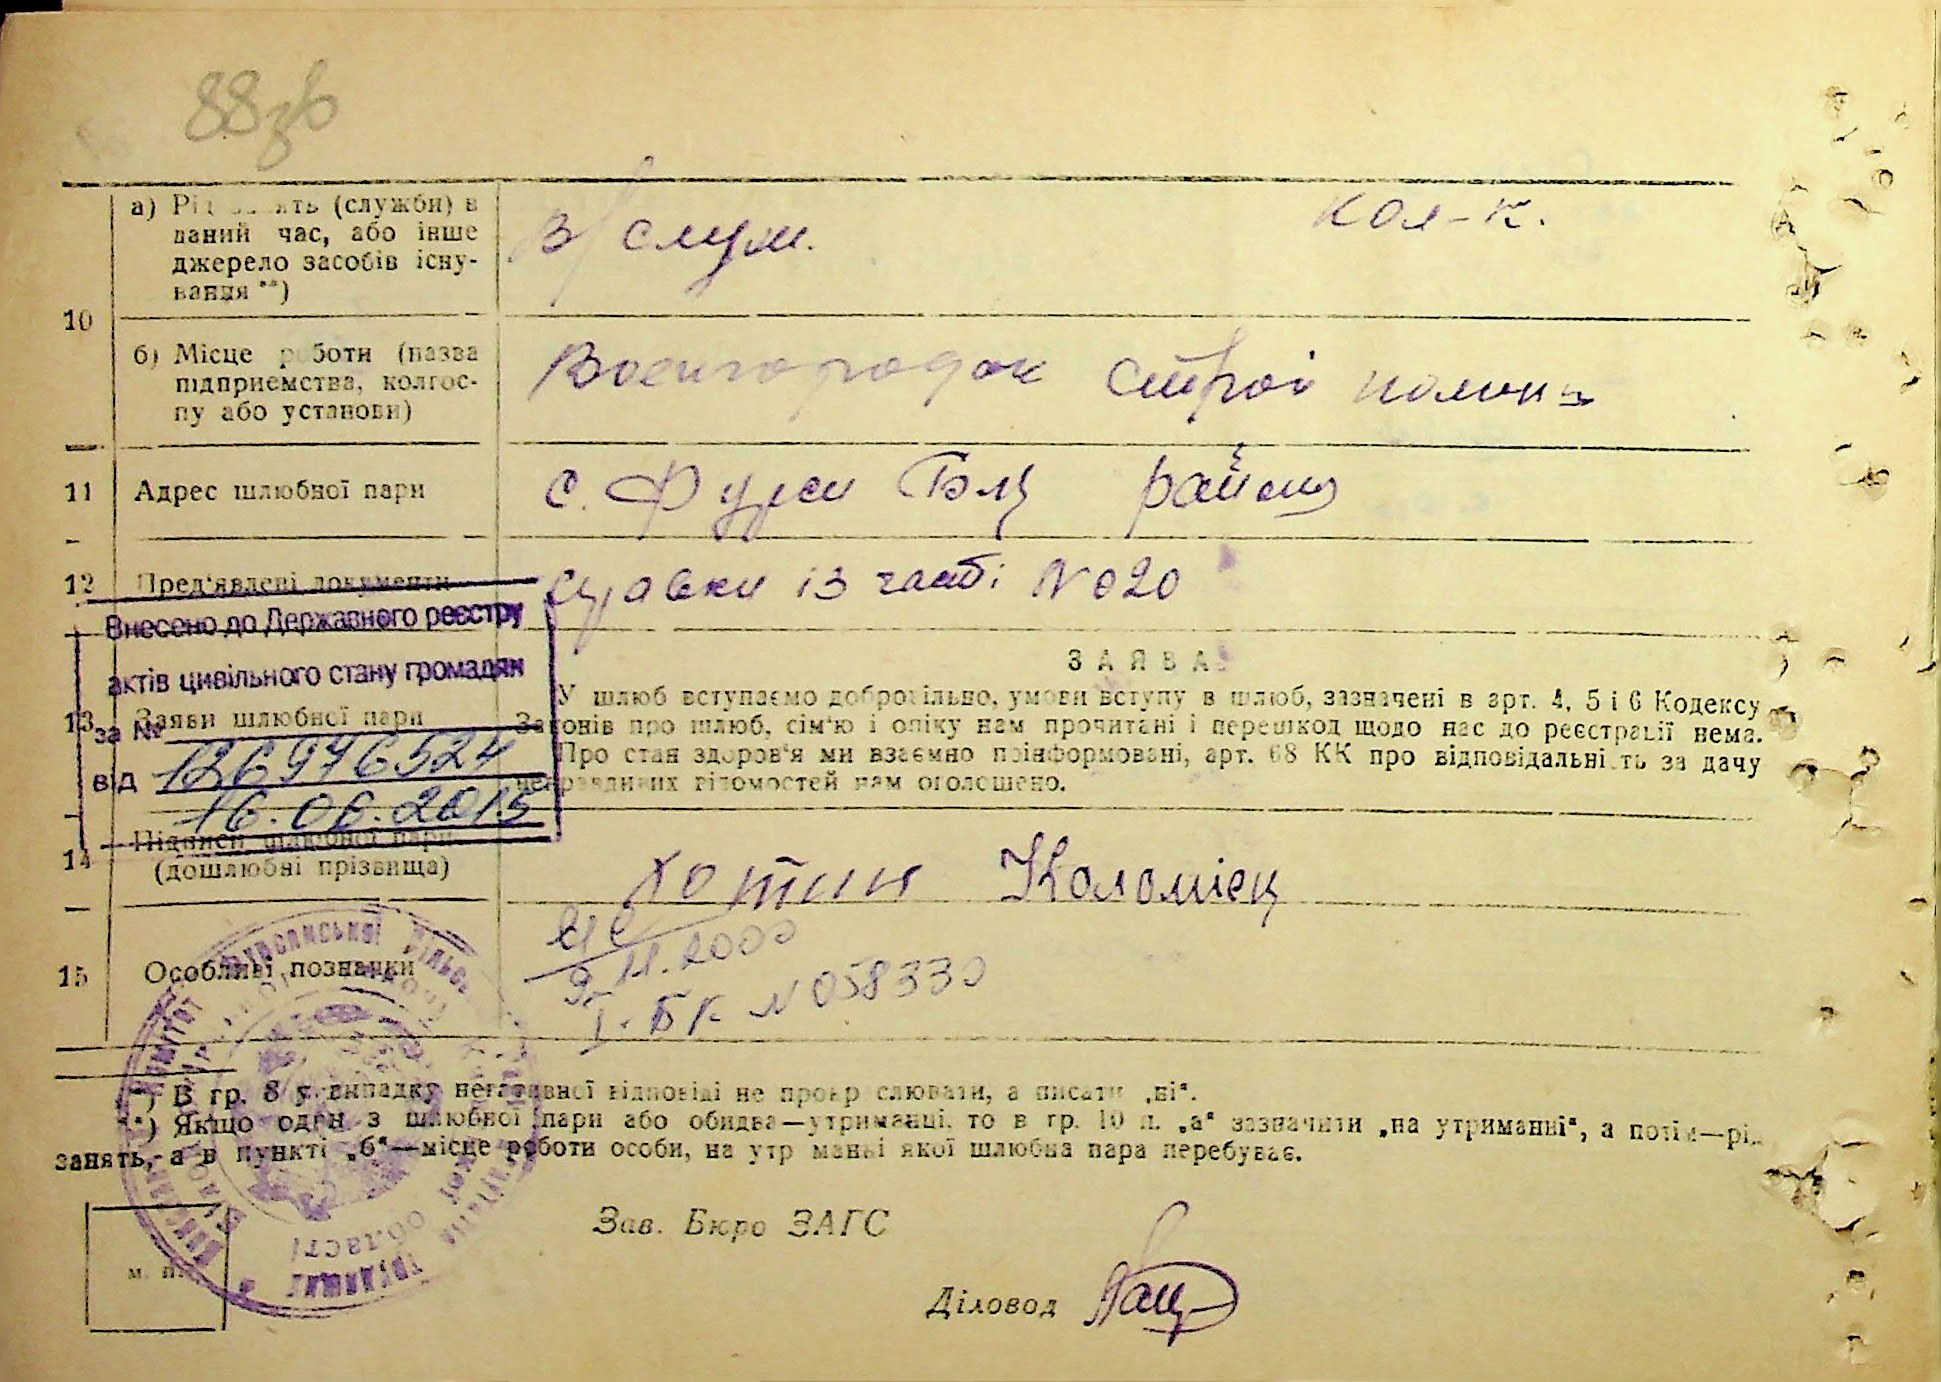 88зв
а) Рід занять (служби) в
даний час, або інше
джерело засобів існу-
вання **)
В/служ.
кол-к.
10
б) Місце роботи (назва
підприємства, колгос-
пу або установи)
Воєнгородок
11
Адрес шлюбної пари
с. Фурси Блц района
12
Пред'явлені документи
справки із часті №020
Внесено до Державного реєстру
актів цивільного стану громадян
за № 126976524
від 16.06.2015
13
Заяви шлюбної пари
ЗАЯВА:
У шлюб вступаємо добровільно, умови вступу в шлюб, зазначені в арт. 4, 5 і 6 Кодексу
Законів про шлюб, сім'ю і опіку нам прочитані і перешкод щодо нас до реєстрації нема.
Про стан здоров'я ми взаємно поінформовані, арт. 68 КК про відповідальність за дачу
неправдивих відомостей нам оголошено.
14
Підписи шлюбної пари
(дошлюбні прізвища)
Хотин Коломієц
15
Особливі познаки
9.11.2000
І-БК №058330
*) В гр. 8 у випадку негативної відповіді не прокреслювати, а писати „ні“.
**) Якщо один з шлюбної пари або обидва—утриманці, то в гр. 10 п. „а“ зазначити „на утриманні“, а потім—рід
занять, а в пункті „б“—місце роботи особи, на утриманні якої шлюбна пара перебуває.
Зав. Бюро ЗАГС
м. п.
Діловод